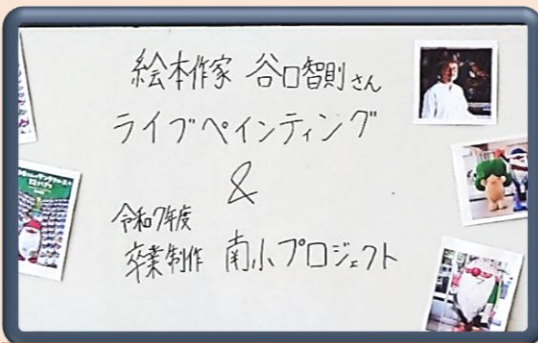 絵本作家 谷口智則さん
ライブペインティング
&
令和7年度
卒業制作 南小プロジェクト